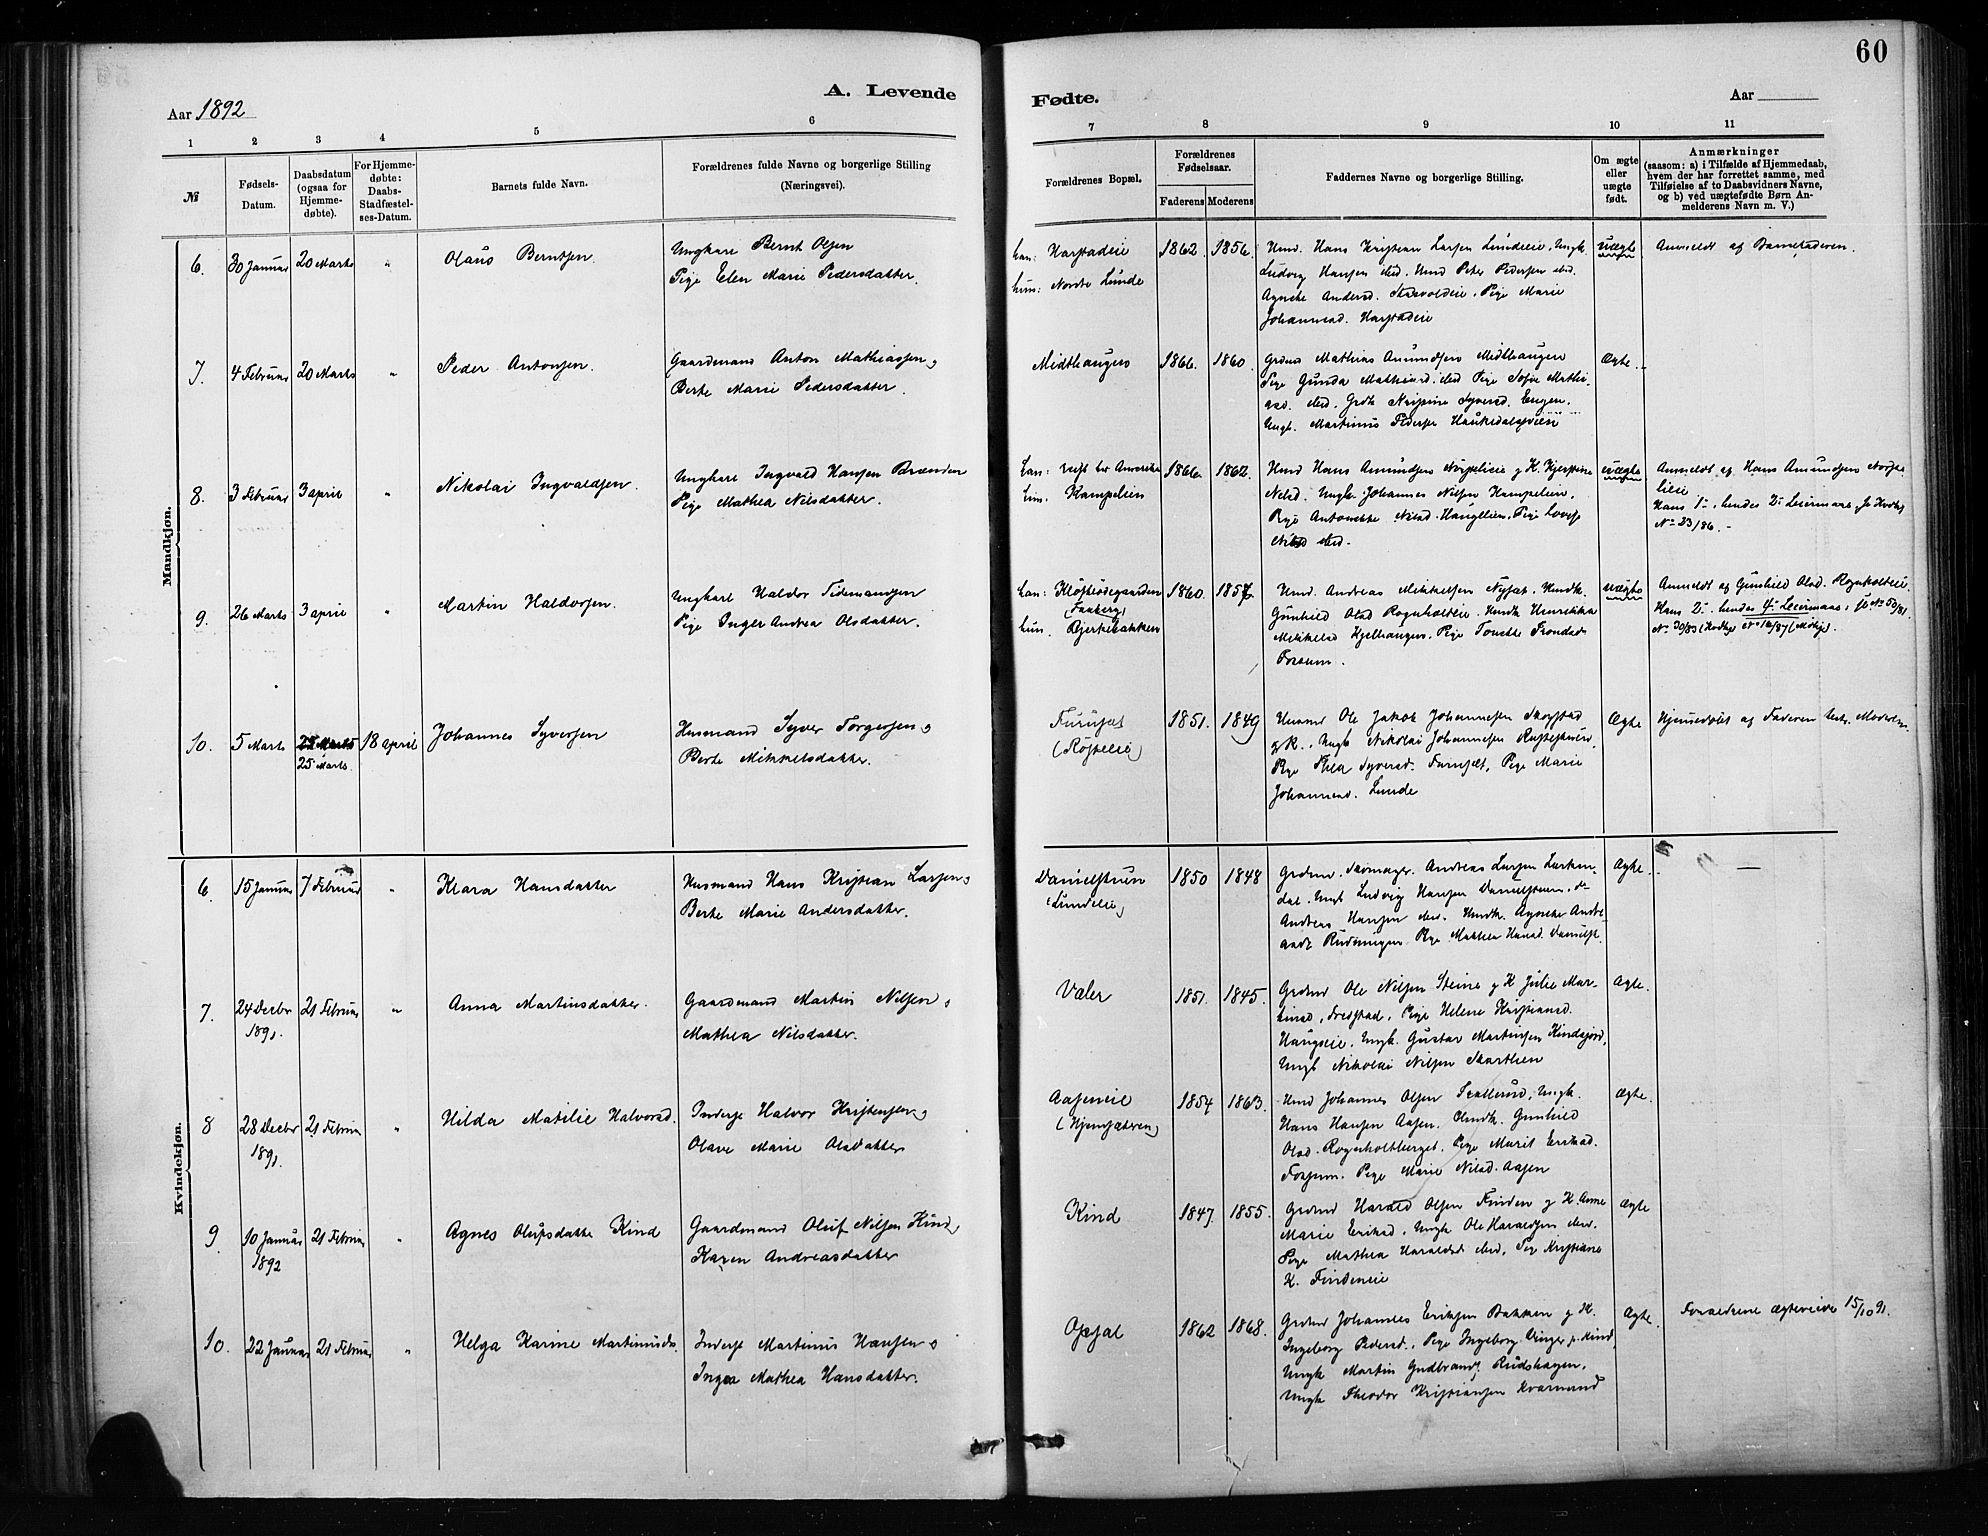 60
A. Levende
Fødte.
Aar 1892
Aar
1
2
3
4
5
6
7
8
9
10
11
№
Fødsels-
Datum.
Daabsdatum
(ogsaa for
Hjemme-
døbte).
For Hjemme-
døbte:
Daabs-
Stadfæstel-
ses-Datum.
Barnets fulde Navn.
Forældrenes fulde Navne og borgerlige Stilling
(Næringsvei).
Forældrenes Bopæl.
Forældrenes
Fødselsaar.
Faderens
Moderens
Faddernes Navne og borgerlige Stilling.
Om ægte
eller
uægte
født.
Anmærkninger
(saasom: a) i Tilfælde af Hjemmedaab,
hvem der har forrettet samme, med
Tilføielse af to Daabsvidners Navne,
og b) ved uægtefødte Børn An-
melderens Navn m. V.)
Mandkjøn.
6. 30 Januar 20 Marts " Olaus Berntsen
Ungkarl Bernt Olsen
Pige Elen Marie Pedersdatter.
han: Harstadeie 1862. 1856.
hun: Nordre Lunde
Hmd. Hans Kristian Larsen Lundeeie, Ungk.
Ludvig Hansen sted. Hmd Peter Pedersen sted.
Agnethe Andersd. Pige Marie
Johannesd. Harstadeie
uægte
Anmeldt af Barnefaderen.
7. 4 Februar 20 Marts " Peder Antonsen.
Gaardmand Anton Mathiassen og
Berte Marie Pedersdatter.
Midthaugen 1866. 1860.
Grdmd Mathias Amundsen Midthaugen
Pige Gunda Mathiasd. sted Pige Sofie Mathi-
asd. sted. Grdk Kristine Syversd. Engen.
Ungk. Martinus Pedersen
Ægte.
8. 3 Februar 3 april " Nikolai Ingvaldsen.
Ungkarl Ingvald Hansen Brænden
Pige Mathea Nilsdatter.
han: reist til Amerika 1866. 1862.
hun. Kampelien
Hmd Hans Amundsen
Nilsd. Ungk. Johannes Nilsen Kampelien.
Pige Antonette Nilsd. Pige Lovise
Nilsd sted.
uægte
Anmeldt af Hans Amundsen
Hans 1ste, hendes 2. Leiermaal, jo Kirkbg
No 23/86.
9. 26 Marts 3 april " Martin Haldorsen.
Ungkarl Haldor Tidemansen
Pige Inger Andrea Olsdatter.
han: 1860. 1857.
(Faaberg)
hun. Bjerkebakken
Hmd. Andreas Mikkelsen Nysæt, Hmdk.
Gunhild Olsd Rognholteie. Hmdk Henrikka
Mikkelsd Kjelhaugen, Pige Tonette Trondsd
Fossum.
uægte
Anmeldt af Gunhild Olsd. Rognholteie
Hans 2. hendes 4. Leiermaal, jo No 50/81.
No 30/83
10. 5 Marts 25 Marts 18 april Johannes Syversen
25 Marts.
Husmand Syver Torgersen og
Berte Mikkelsdatter.
Furusæt 1851. 1849
(Røsteeie)
Husmd Ole Jakob Johannesen
g K. Ungk Nikolai Johannesen
Pige Thea Syversd. Furusæt, Pige Marie
Johannesd. Lunde
Ægte
Hjemmedøbt af Faderen Moderen.
Kvindekjøn.
6. 15 Januar 7 Februar " Klara Hansdatter
Husmand Hans Kristian Larsen og
Berte Marie Andersdatter.
Danielstuen 1850 1848
(Lundeeie)
Grdmd. Skomager. Andreas Larsen
dal. Ungk Ludvig Hansen Danielstuen,
Andreas Hansen sted. Hmdk. Agnethe Andre-
Rudningen. Pige Mathea Hansd. Danielst.
Ægte.
7. 24 Decbr 21 Februar " Anna Martinsdatter.
1891.
Gaardmand Martin Nilsen og
Mathea Nilsdatter.
Væler 1851. 1845.
Grdmd Ole Nilsen Steine g K Julie Mar-
tinsd, Pige Helene Kristiansd.
Haugseie. Ungk. Gustav Martinsen
Ungk Nikolai Nilsen Skartlien
Ægte.
8 28 Decbr 21 Februar " Hilda Matilie Halvorsd.
1891.
Inderst Halvor Kristensen og
Olave Marie Olsdatter
Aaseneie 1854 1863.
(Hjemsæteren)
Hmd Johannes Olsen Ungk.
Hans Hansen Aasen. Hmdk. Gunhild
Olsd. Rognholtberget. Pige Marit Eriksd.
Fossum. Pige Marie Nilsd. Aasen
Ægte.
9. 10 Januar 21 Februar " Agnes Olufsdatter Kind
1892
Gaardmand Oluf Nilsen Kind og
Karen Andreasdatter
Kind 1847. 1855.
Grdmd Harald Olsen Finden g K. Anne
Marie Eriksd. Ungk Ole Haraldsen sted.
Pige Mathea Haraldsd sted, Pige Kristiane
K. Findeneie
Ægte
10. 22 Januar 21 Februar " Helga Karine Martinusd.
Inderst Martinus Hansen og
Inga Mathea Hansdatter.
Opsal 1862 1868.
Grdmd Johannes Eriksen Bakken g K.
Ingeborg Pedersd. Pige Ingeborg Kind,
Ungk Martin Gudbrands. Rudshagen.
Ungk Theodor Kristiansen Kvarnrud
Ægte.
Forældrene ægteviede 15/10 91.